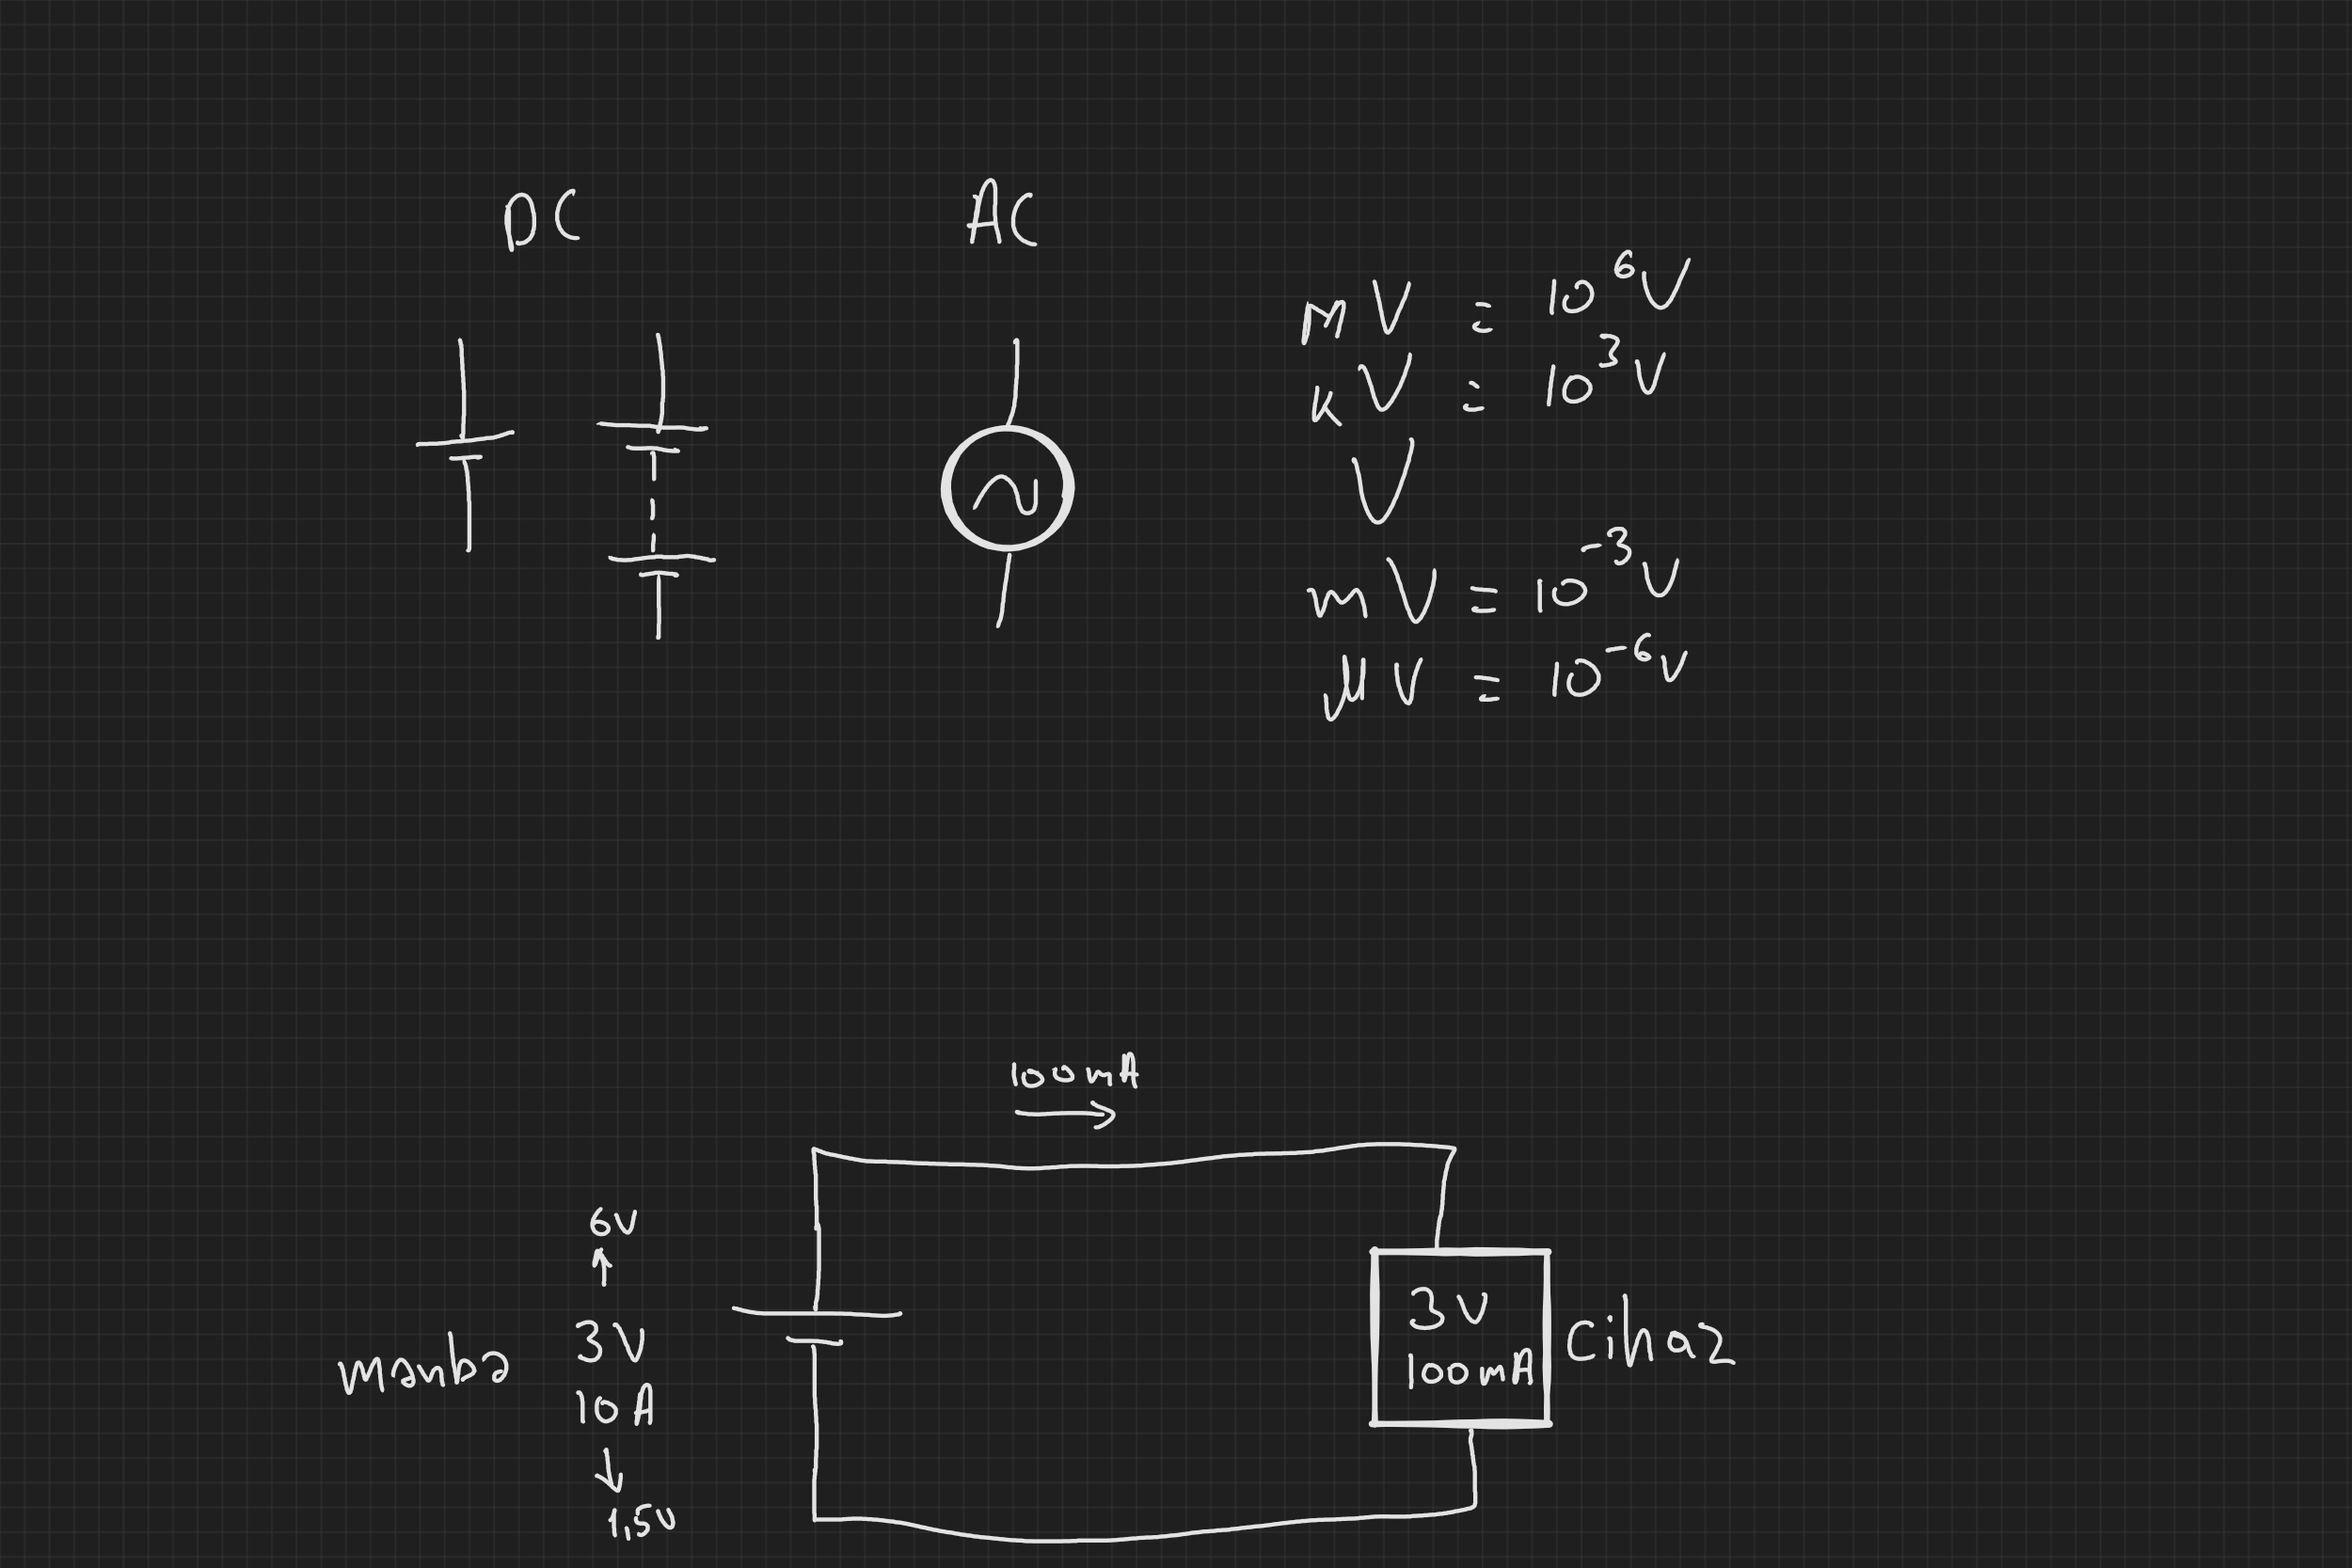 DC
AC
MV = 10⁶V
kV = 10³V
V
mV = 10⁻³V
µV = 10⁻⁶V
100mA
6V
3V
10A
1,5V
manba
3V
100mA
Cihaz